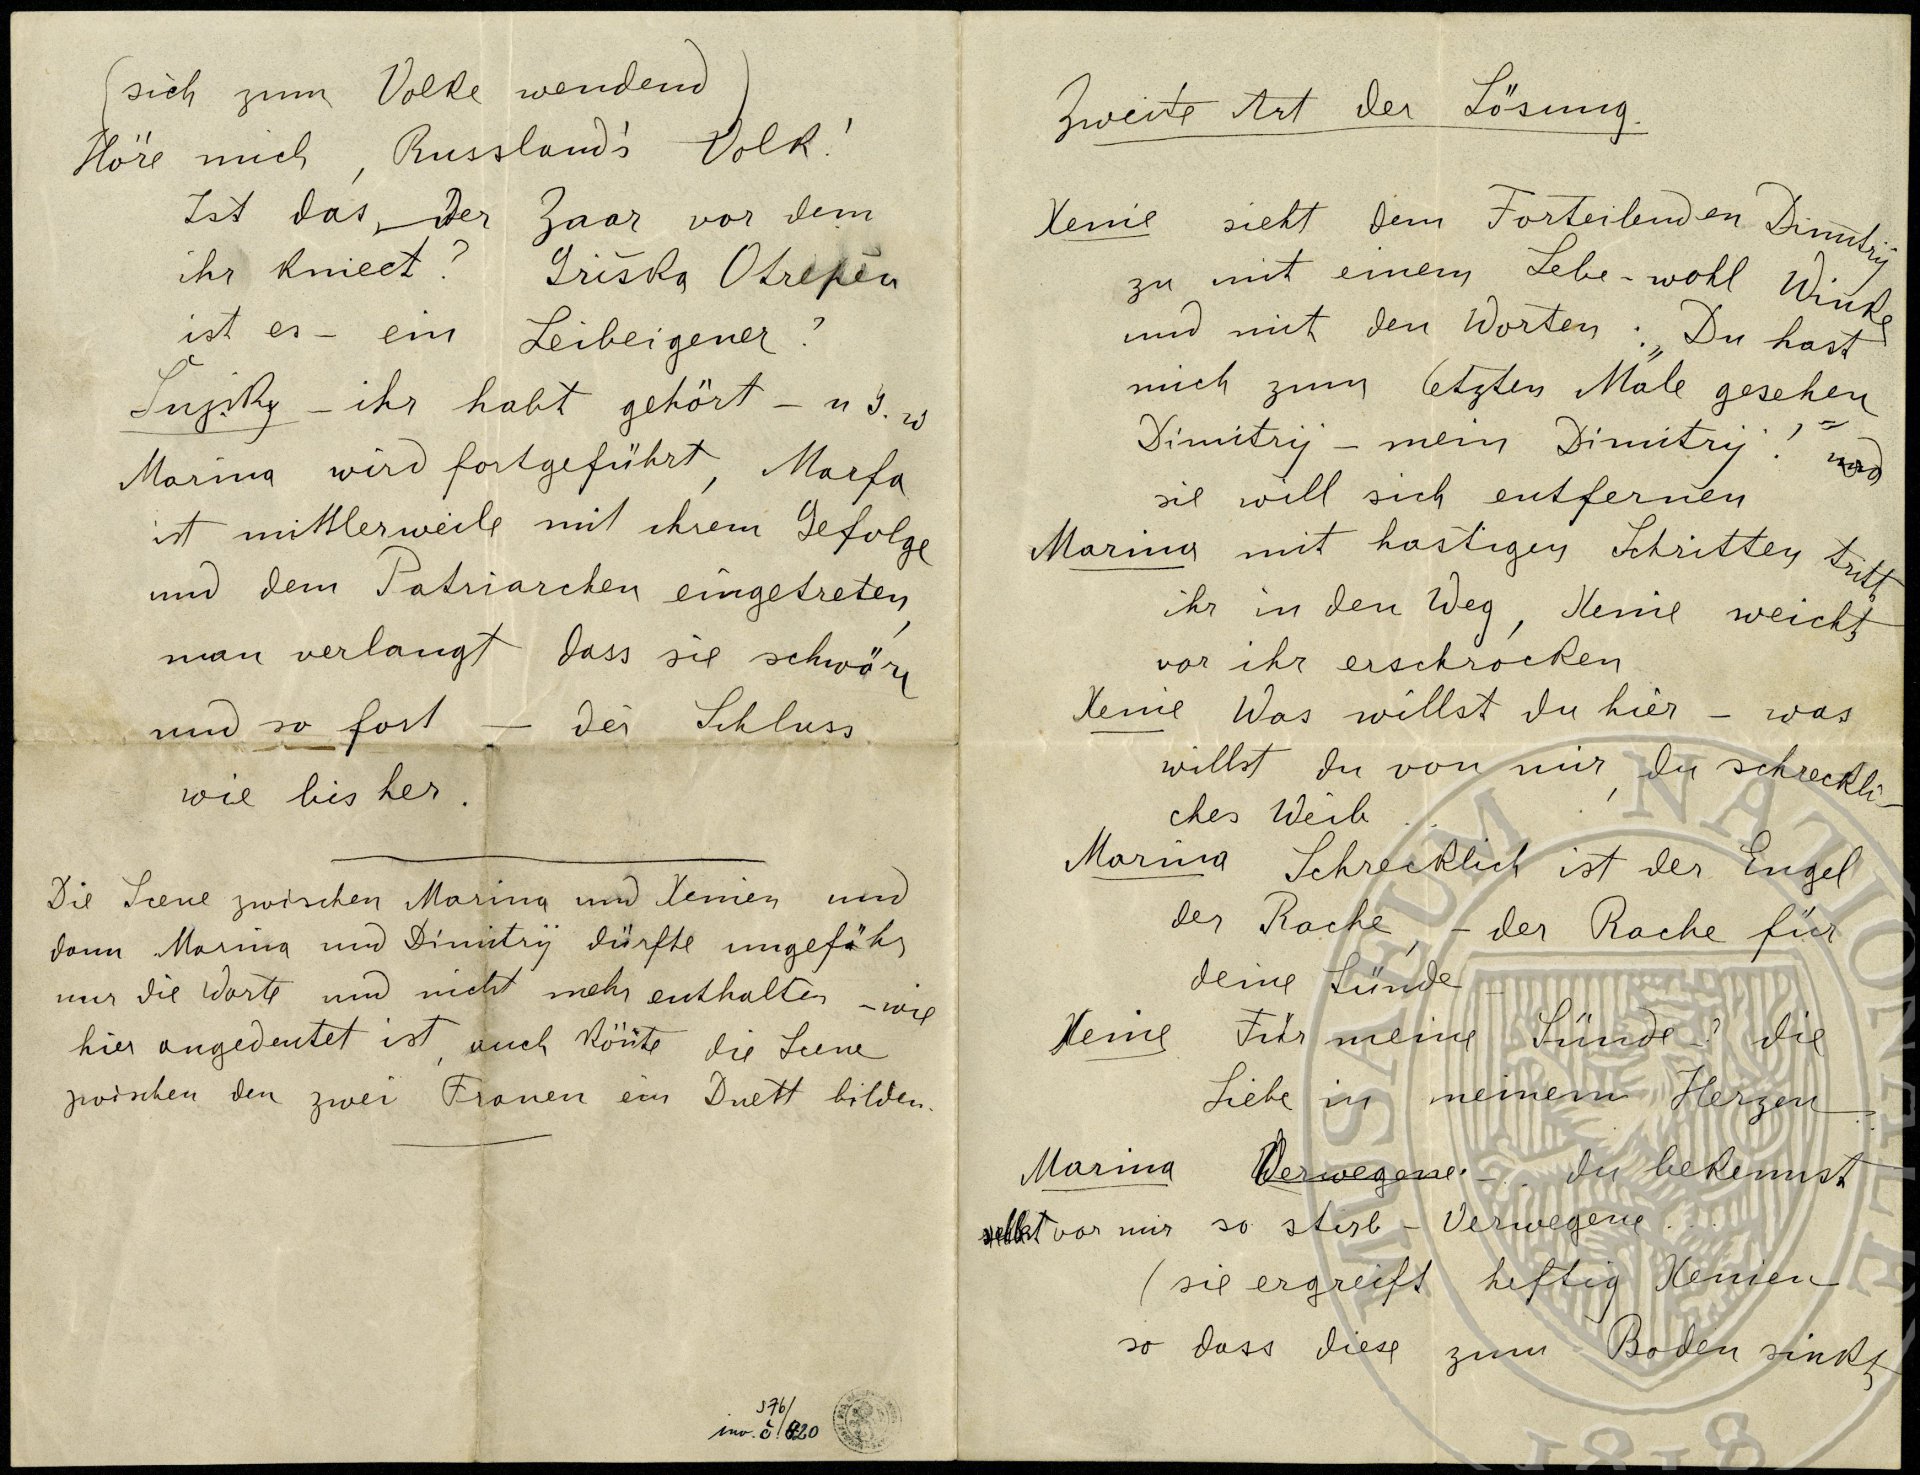 (sich zum Volke wendend)
Höre mich, Russland's Volk!
Ist das, der Zaar vor dem
ihr kniect? Griška Otrepěu
ist es – ein Leibeigener?
Šujský – ihr habt gehört – u s. w
Marina wird fortgeführt, Marfa
ist mittlerweile mit ihrem Gefolge
und dem Patriarchen eingetreten,
man verlangt dass sie schwört
und so fort – der Schluss
wie bisher.
Die Scene zwischen Marina und Xenien und
dann Marina und Dimitrij dürfte ungefähr
nur die Worte und nicht mehr enthalten – wie
hier angedeutet ist, auch könnte die Scene
zwischen den zwei Frauen ein Duett bilden.
576/
inv. č. 820
Zweite Art der Lösung.
Xenie sieht dem Forteilenden Dimitrij
zu mit einem Lebe-wohl Winke
und mit den Worten: „Du hast
mich zum letzten Male gesehen
Dimitrij – mein Dimitrij!" und
sie will sich entfernen
Marina mit hastigen Schritten tritt
ihr in den Weg, Xenie weicht
vor ihr erschrocken
Xenie Was willst du hier – was
willst du von mir, du schreckli-
ches Weib ..
Marina Schrecklich ist der Engel
der Rache, – der Rache für
deine Sünde –
Xenie Für meine Sünde –? die
Liebe in meinem Herzen ...
Marina Verwegene – .. du bekennst
selbst vor mir so stirb – Verwegene ...
(sie ergreift heftig Xenien
so dass diese zum Boden sinkt,
MUSAEUM NATIONALE
1818